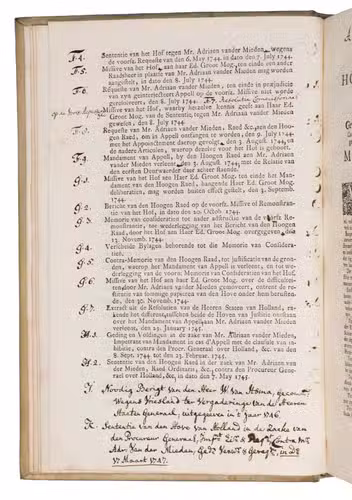 F. 4. Sententie van het Hof tegen Mr. Adriaan vander Mieden, wegens
de voorsz. Requeste van den 6. May 1744. in dato den 7. July 1744.
F. 5. Missive van het Hof, aan haar Ed. Groot Mog. ten einde een ander
Raadsheer in plaatse van Mr. Adriaan vander Mieden mag worden
aangesteld, in dato den 8. July 1744.
F. 6. Requeste van Mr. Adriaan vander Mieden, ten einde in præjuditie
van zyn geinterjecteert Appell op de voorsz. Missive niet werde
geresolveert, den 8. July 1744.
Missive van het Hof, waarby hetzelve kennis geeft aan Haar Ed.
Groot Mog. van de Sententie, tegen Mr. Adriaan vander Mieden
gewesen, den 8. July 1744.
Requeste van Mr. Adriaan vander Mieden, Raed &c. aan den Hoogen
Raed, om in Appell ontfangen te worden, den 9. July 1744.
met het Appointement daerop gevolgt, den 3. August 1744, en
de andere Articulen, waerop dezelve voor het Hof is gehoort.
F. 9. Mandament van Appell, by den Hoogen Raed aen Mr. Adriaan
vander Mieden verleent den 3. August 1744, met de Relaas van
den eersten Deurwaerder daer achter staende.
G. Missive van het Hof aan Haar Ed. Groot Mog. ten einde het Mandament
van den Hoogen Raad, hangende Haar Ed. Groot Mog.
deliberatien, mag worden buiten effect gestelt, den 3. Septemb.
1744.
G. 2. Bericht van den Hoogen Raed op de voorsz. Missive of Remonstrantie
van het Hof, in dato den 20. Octob. 1744.
G. 3. Memorie van consideratien tot nader adstructie van de voorsz. Remonstrantie,
ter wederlegging van het Bericht van den Hoogen
Raad, door het Hof aan Haar Ed. Groot Mog. overgegeven, den
13. Novemb. 1744.
G. 4. Verscheide Bylagen behorende tot die Memorie van Consideratien.
G. 5. Contra-Memorie van den Hoogen Raad, tot justificatie van de gronden,
waerop het Mandament van Appell is verleent, en tot wederlegging
van de voorsz. Memorie van Consideratien van het Hof.
G. 6. Missive van het Hof aan Haar Ed. Groot Mog. over de difficulteiten,
door Mr. Adriaan vander Mieden gemoveert, omtrent de restitutie
van sommige papieren van den Hove onder hem berustende,
den 30. Novemb. 1744.
G. 7. Extract uit de Resolutien van de Heeren Staten van Holland, rakende
het different, tusschen beide de Hoven van Justitie ontstaen
over het Mandament van Appell, aan Mr. Adriaan vander Mieden
verleent, den 29. January 1745.
H. 1. Geding en Voldingen in de zaak van Mr. Adriaan vander Mieden,
Impetrant van Mandament in cas d'Appell met de clausule van
inhibitie, contra den Procr. Generaal over Holland, &c. van den
8. Sept. 1744. tot den 23. Febr. 1745.
H. 2. Sententie van den Hoogen Raed in der zaak van Mr. Adriaan vander
Mieden, Raed Ordinaris, &c. contra den Procureur Generael
over Holland, &c. in dato den 7. May 1745.
Noodig Berigt van den Heer
Wegens Vriesland ter Vergaderinge van de Heeren
Staaten Generaal, uitgegeeven in't jaar 1746.
K. Sententie van den Hove van Holland in de Zaeke van
den Procureur Generaal, contra Mr.
Adr. Van der Mieden, in dato
17 Maart 1747.